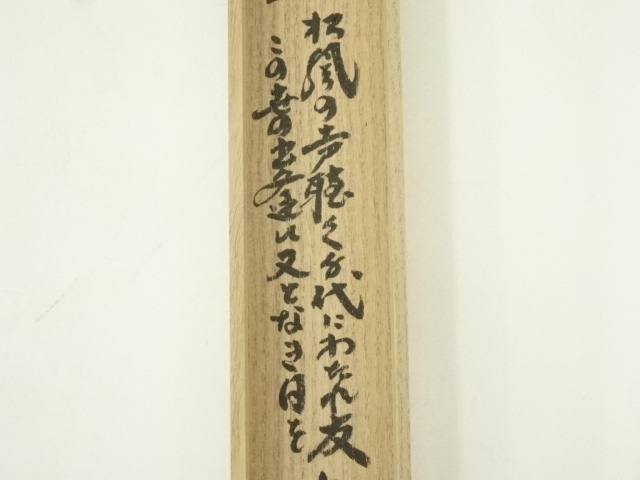 松風の声聴く千代にわたれ友
この喜の出逢ひ又となき日を